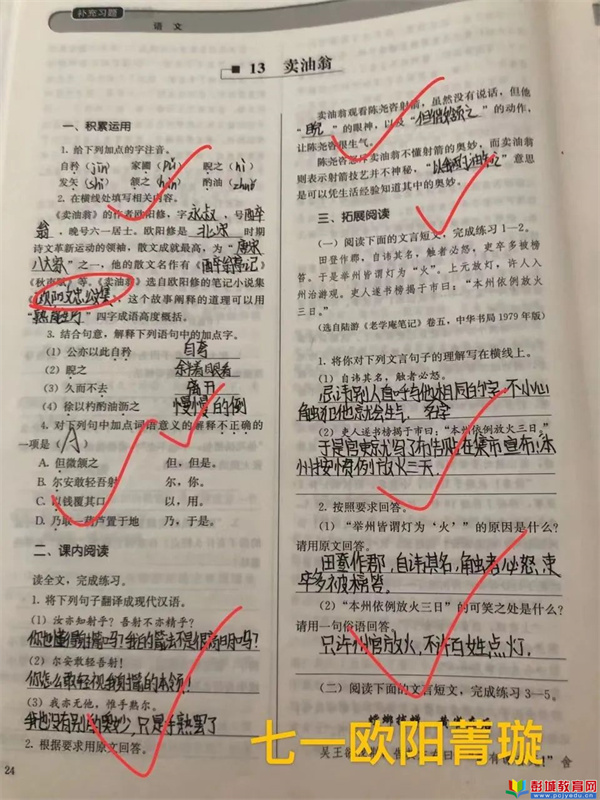 补充习题
语文
13 卖油翁
一、积累运用
1. 给下列加点的字注音。
自矜（jīn） 家圃（pǔ） 睨之（nì）
发矢（shǐ） 颔之（hàn） 酌油（zhuó）
2. 在横线处填写相关内容。
《卖油翁》的作者欧阳修，字永叔，号醉
翁，晚号六一居士。欧阳修是北宋时期
诗文革新运动的领袖，散文成就最高，为“唐宋
八大家”之一，他的散文名作有《醉翁亭记》
《秋声赋》等。《卖油翁》选自欧阳修的笔记小说集
《欧阳文忠公集》，这个故事阐释的道理可以用
“熟能生巧”四字成语高度概括。
3. 结合句意，解释下列语句中的加点字。
（1）公亦以此自矜 自夸
（2）睨之 斜着眼看
（3）久而不去 离开
（4）徐以杓酌油沥之 慢慢的倒
4. 对下列句中加点词语意义的解释不正确的
一项是（A）
A. 但微颔之 但，但是。
B. 尔安敢轻吾射 尔，你。
C. 以钱覆其口 以，用。
D. 乃取一葫芦置于地 乃，于是。
二、课内阅读
读全文，完成练习。
1. 将下列句子翻译成现代汉语。
（1）汝亦知射乎？吾射不亦精乎？
你也懂射箭吗？我的箭法不是很高明吗？
（2）尔安敢轻吾射！
你怎么敢轻视我射箭的本领！
（3）我亦无他，惟手熟尔。
我也没有别的奥妙，只是手熟罢了
2. 根据要求用原文回答。
24
卖油翁观看陈尧咨射箭，虽然没有说话，但他
“睨”的眼神，以及“但微颔之”的动作，
让陈尧咨很生气。
陈尧咨怒斥卖油翁不懂射箭的奥妙，而卖油翁
则表示射箭技艺并不神秘，“以我酌油知之”意思
是可以凭生活经验知道其中的奥妙。
三、拓展阅读
（一）阅读下面的文言短文，完成练习1—2。
田登作郡，自讳其名，触者必怒，吏卒多被榜
笞。于是举州皆谓灯为“火”。上元放灯，许人入
州治游观。吏人遂书榜揭于市曰：“本州依例放火
三日。”
（选自陆游《老学庵笔记》卷五，中华书局1979年版）
1. 将你对下列文言句子的理解写在横线上。
（1）自讳其名，触者必怒。
忌讳别人直呼与他相同的字，不小心
触犯他就会生气。名字
（2）吏人遂书榜揭于市曰：“本州依例放火三日。”
于是官吏就写了布告贴在集市宣布：本
州按惯例放火三天。
2. 按照要求回答。
（1）“举州皆谓灯为‘火’”的原因是什么？
请用原文回答。
田登作郡，自讳其名，触者必怒，吏
卒多被榜笞。
（2）“本州依例放火三日”的可笑之处是什么？
请用一句俗语回答。
只许州官放火，不许百姓点灯。
（二）阅读下面的文言短文，完成练习3—5。
七一欧阳菁璇
彭城教育网
www.pcjyedu.cn